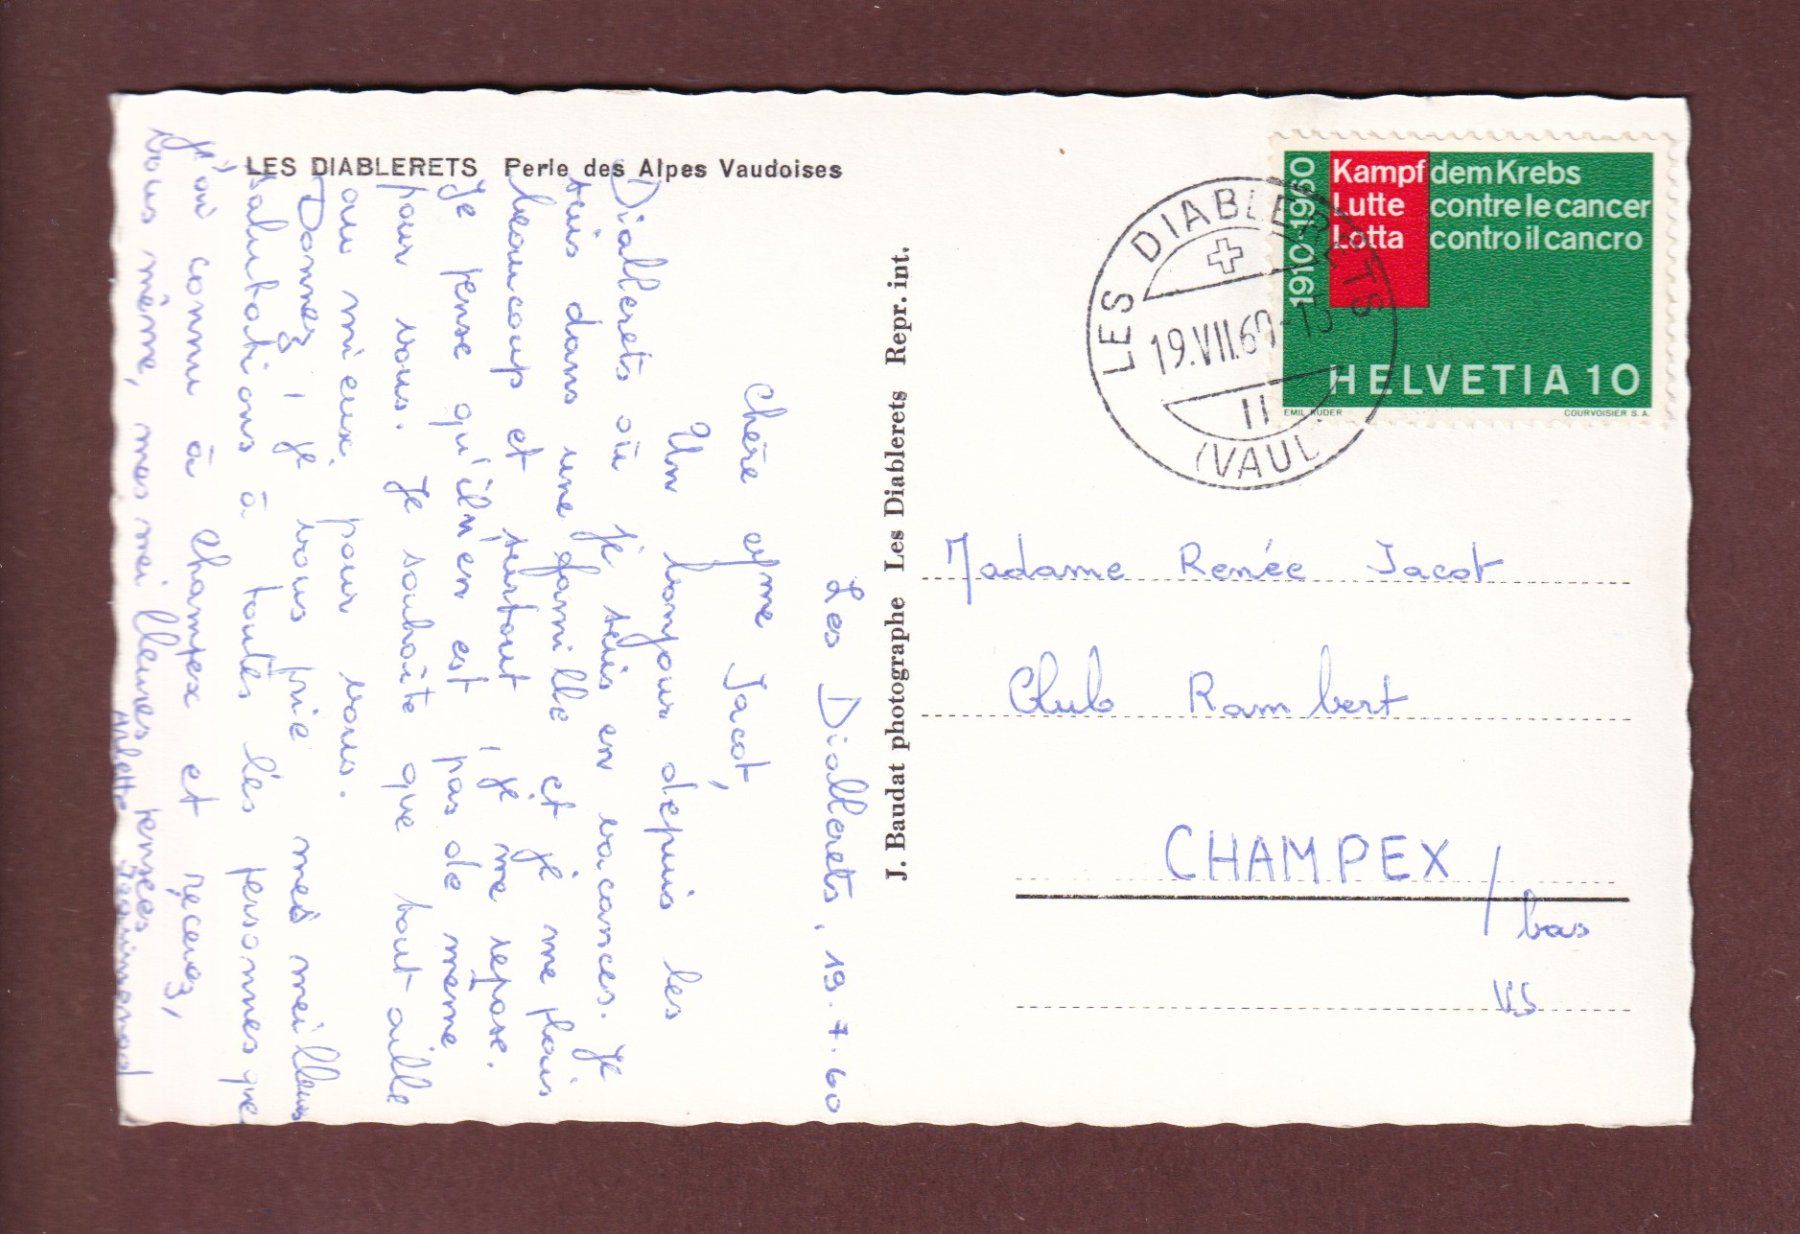 LES DIABLERETS Perle des Alpes Vaudoises
Les Diablerets, 19.7.60
Chère Mme Jacot,
Un bonjour depuis les
Diablerets où je suis en vacances. Je
suis dans une famille et je me plais
beaucoup et surtout, je me repose.
Je pense qu'il n'en est pas de même
pour vous. Je souhaite que tout aille
au mieux pour vous.
Donnez, je vous prie mes meilleures
salutations à toutes les personnes que
j'ai connu à Champex et recevez,
vous même, mes meilleures pensées
Arlette
J. Baudat photographe Les Diablerets Repr. int.
1910-1960
Kampf dem Krebs
Lutte contre le cancer
Lotta contro il cancro
HELVETIA 10
EMIL RUDER COURVOISIER S.A.
LES DIABLERETS
19.VII.60-15
(VAUD
Madame Renée Jacot
Club Rambert
CHAMPEX / bas
VS